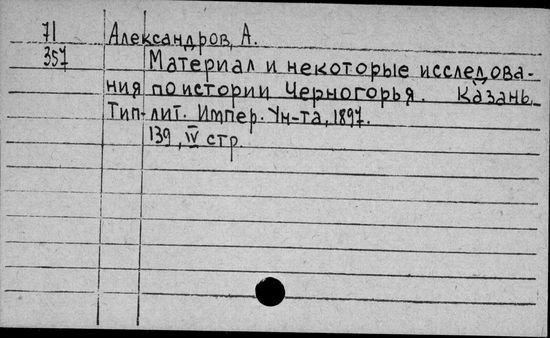 71 Александров, А.
357 Материал и некоторые исследова-
ния по истории Черногорья. Казань.
Тип-лит. Импер. Ун-та, 1897.
139, IV стр.